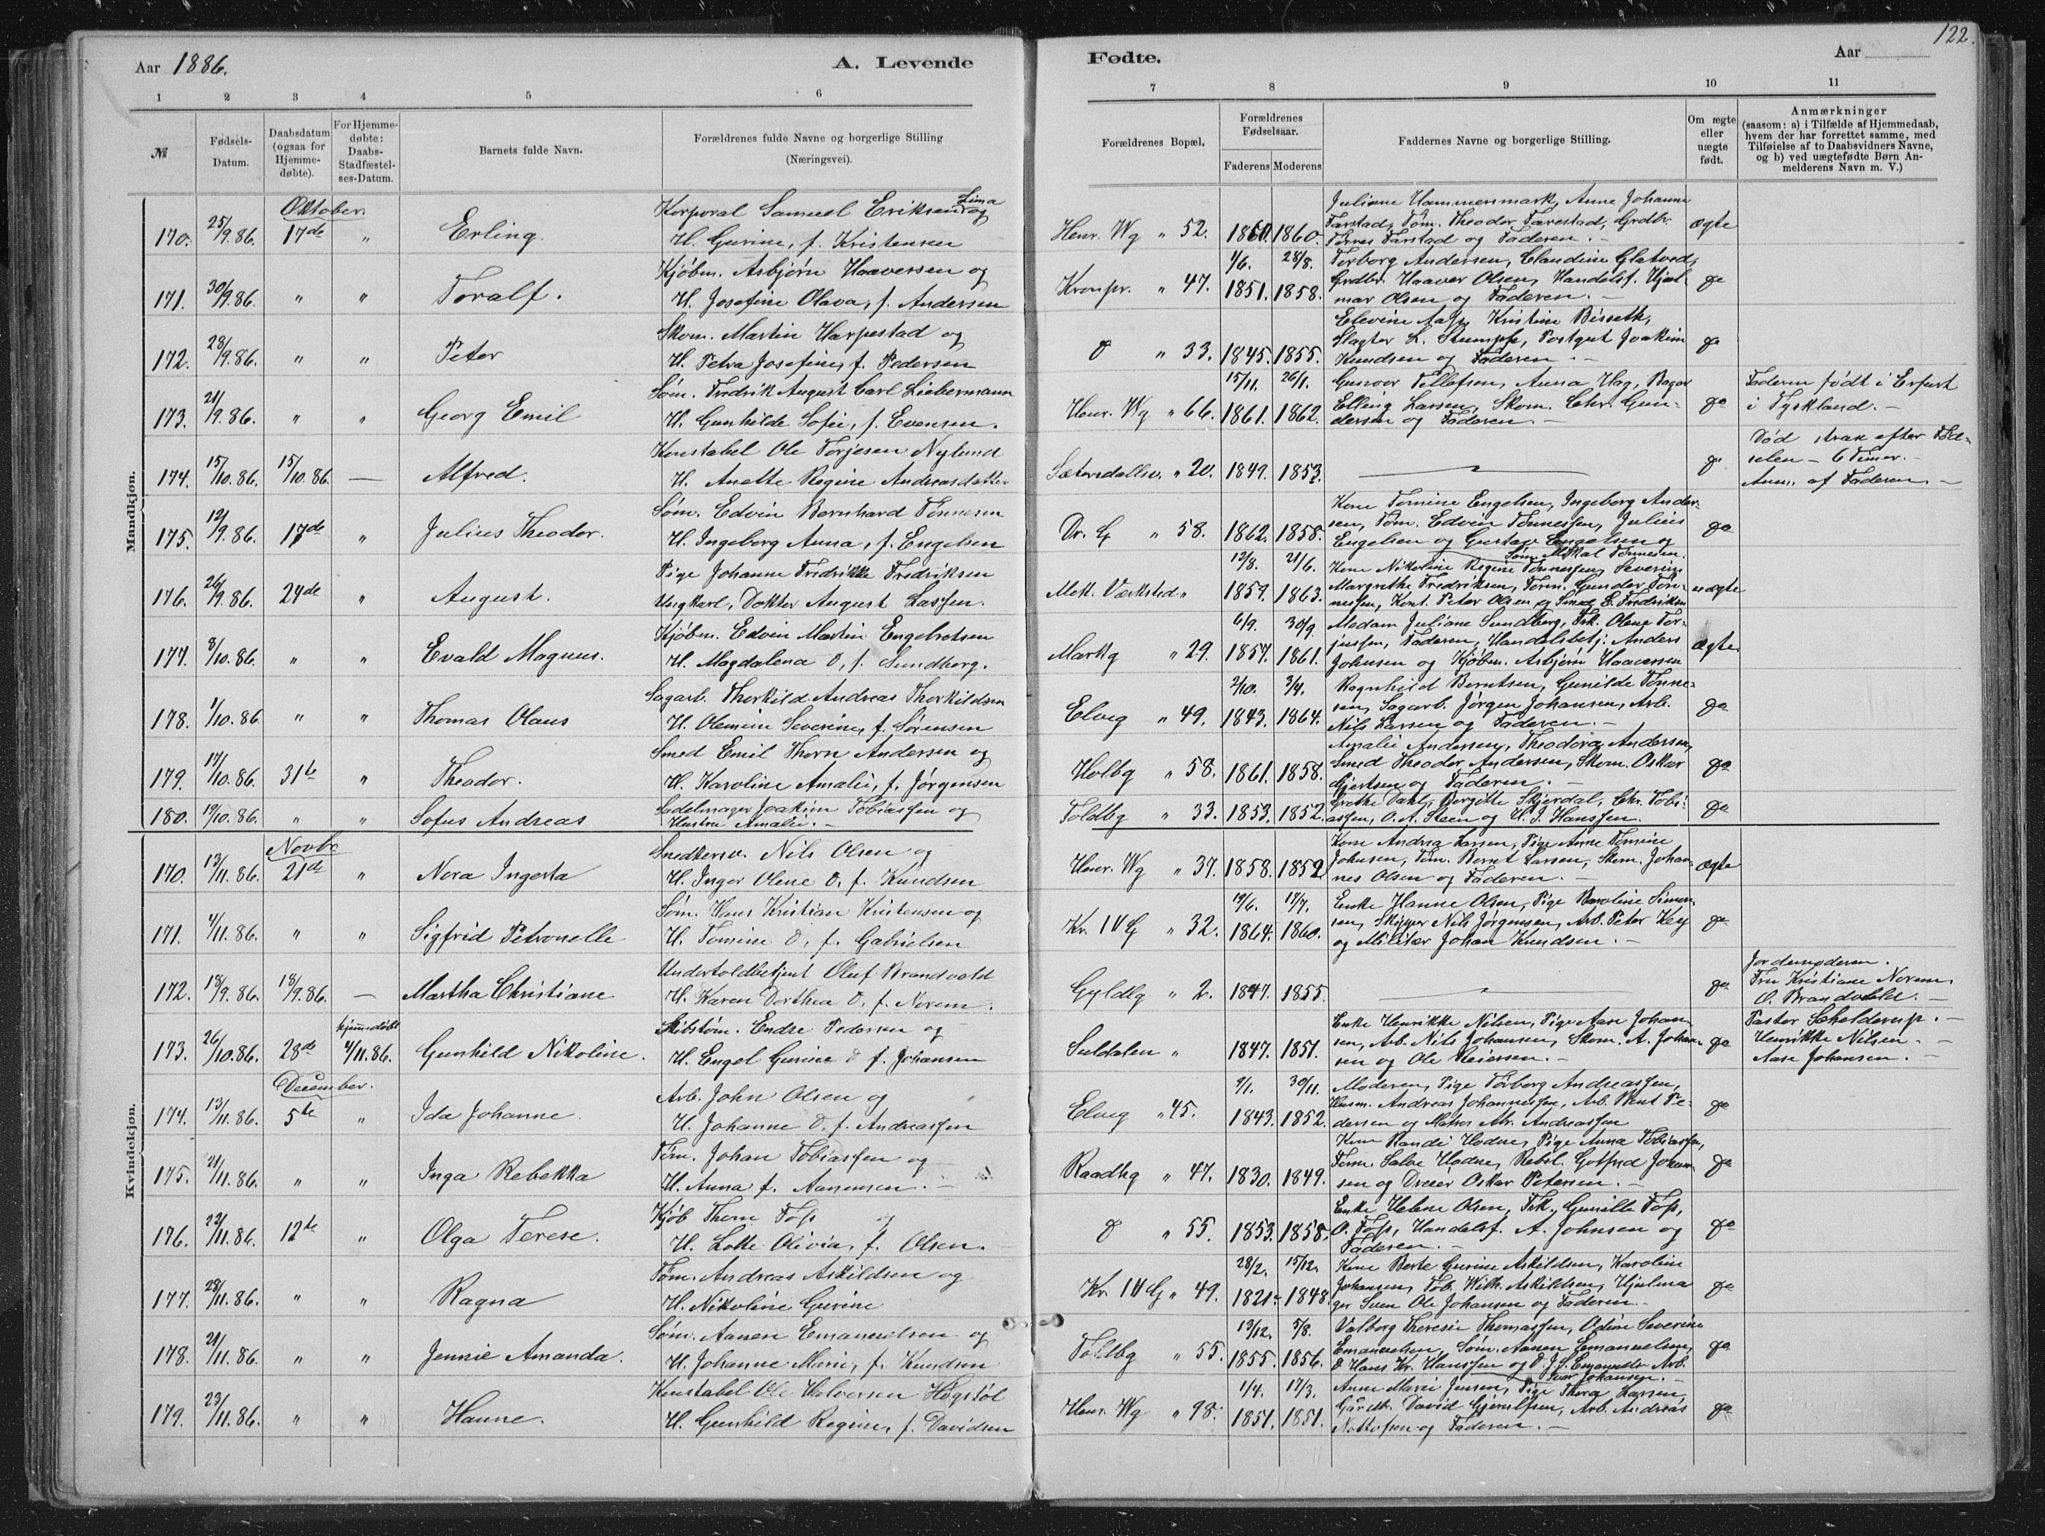 122.
Aar 1886.
A. Levende Fødte.
Aar
1 2 3 4 5 6 7 8 9 10 11
№
Fødsels-Datum.
Daabsdatum (ogsaa for Hjemmedøbte).
For Hjemmedøbte: Daabs-Stadfæstelses-Datum.
Barnets fulde Navn.
Forældrenes fulde Navne og borgerlige Stilling (Næringsvei).
Forældrenes Bopæl.
Forældrenes Fødselsaar.
Faderens Moderens
Faddernes Navne og borgerlige Stilling.
Om ægte eller uægte født.
Anmærkninger (saasom: a) i Tilfælde af Hjemmedaab, hvem der har forrettet samme, med Tilføielse af to Daabsvidners Navne, og b) ved uægtefødte Børn Anmelderens Navn m. V.)
Mandkjøn.
Oktober.
170. 25/9.86. 17de " Erling. Korporal Samuel Eriksen Lima og
H. Gurine, f. Kristensen
Henr. Wg " 52. 1860. 1860.
Juliane Hammersmark, Anne Johanne
Farstad, Tøm. Theodor Farestad, Grdbr.
Tørres Farstad og Faderen. — ægte
171. 30/9.86. " " Toralf. Kjøbm. Asbjørn Haaversen og
H. Josefine Olava, f. Andersen
Kronpr. " 47. 1/6. 1851. 28/8. 1858.
Torborg Andersen, Claudine Glatved,
Grdbr. Haaver Olsen, Handelsf. Hjal-
mar Olsen og Faderen. — do
172. 28/9.86. " " Peter Skom. Martin Harpestad og
H. Petra Josefine, f. Pedersen
do " 33. 1845. 1855.
Elevine Aas, Kristine Bisseth,
Slagter L. Stumpf, Postgut Joakim
Knudsen og Faderen. — do
173. 21/9.86. " " Georg Emil Søm. Fredrik August Carl Liebermann
H. Gunhilde Sofie, f. Evensen.
Henr. Wg " 66. 15/11. 1861. 26/1. 1862.
Gunvor Tellefsen, Anna Hag, Bager
Elling Larsen, Skom. Chr. Gun-
dersen og Faderen. — do
Faderen født i Erfurt
i Tyskland. —
174. 15/10.86. 15/10.86. — Alfred. Konstabel Ole Torjesen Nylund
H. Anette Regine Andreasdatter
Sætersdalsv. " 20. 1849. 1853. — do
Død strax efter Fød-
selen — 6 Timer. —
Anm. af Faderen. —
175. 12/9.86. 17de " Julius Theodor. Søm. Edvin Bernhard Tønnesen
H. Ingeborg Anna, f. Engelsen
Dr. G " 58. 1862. 1858.
Kone Tomine Engelsen, Ingeborg Ander-
sen, Tøm. Edvin Tønnessen, Julius
Engelsen og Gustav Engelsen og
Søm. Mikal Tønnesen. do
176. 26/9.86. 24de " August. Pige Johanne Fredrikke Fredriksen
Ungkarl, Dokter August Lassen.
Mek. Værksted " 12/8. 1859. 21/6. 1863.
Kone Nikoline Regine Tønnessen, Severine
Margrethe Fredriksen, Tøm. Gunder Tøn-
nessen, Kont. Peter Olsen og Smed E. Fredriksen uægte
177. 8/10.86. " " Evald Magnus. Kjøbm. Edvin Martin Engebretsen
H. Magdalena O, f. Sundberg.
Markg " 29. 6/9. 1857. 30/9. 1861.
Madam Juliane Sundberg, Frk. Olene Tor-
jussen, Faderen, Handelsbetj. Anders
Johnsen og Kjøbm. Asbjørn Haaversen ægte
178. 1/10.86. " " Thomas Olaus Sagarb. Thorkild Andreas Thorkildsen
H. Olemine Severine, f. Sørensen
Elveg " 49. 2/10. 1843. 3/4. 1864.
Ragnhild Berntsen, Gunilde Tønne-
sen, Sagarb. Jørgen Johansen, Arb.
Nils Larsen og Faderen. — do
179. 17/10.86. 31te " Theodor. Smed Emil Thorn Andersen og
H. Karoline Amalie, f. Jørgensen
Holbg " 58. 1861. 1858.
Amalie Andersen, Theodora Andersen,
Smed Theodor Andersen, Skom. Oskar
Gjertsen og Faderen. — do
180. 19/10.86. " " Sofus Andreas Sadelmager Joakim Tobiassen og
Hustru Amalie. —
Toldbg " 33. 1853. 1852.
Grethe Dahl, Bergitte Skjerdal, Chr. Tobi-
assen, O. A. Steen og H. J. Hanssen. do
Kvindekjøn.
Novbr
170. 13/11.86. 21de " Nora Ingerta Snedkersv. Nils Olsen og
H. Inger Olene O. f. Knudsen
Henr. Wg " 37. 1858. 1852
Kone Andrea Larsen, Pige Anne Tomine
Johnsen, Tøm. Bernt Larsen, Skom. Johan-
nes Olsen og Faderen. — ægte
171. 4/11.86. " " Sigfrid Petronelle Søm. Hans Kristian Kristensen og
H. Tomine O, f. Gabrielsen
Kr. IV G " 32. 19/6. 1864. 17/7. 1860.
Enke Hanne Olsen, Pige Karoline Simon-
sen, Skipper Nils Jørgensen, Arb. Peter Key
og Militær Johan Knudsen. — do
172. 18/9.86. 18/9.86. — Martha Christiane Undertoldbetjent Oluf Brandvold
H. Karen Dorthea O. f. Norem.
Gyldlg " 2. 1847. 1855. — do
Jordemoderen.
Fru Kristiane Norem,
O. Brandvold. —
173. 26/10.86. 28de hjemmedøbt 4/11.86. Gunhild Nikoline. Skibstøm. Endre Pedersen og
H. Engel Gurine O f. Johansen
Suldalen " 1847. 1851.
Enke Henrikke Nilsen, Pige Aase Johan-
sen, Arb. Nils Johansen, Skom. A. Johan-
sen og Ole Reiersen. — do
Pastor Schelderup. —
Henrikke Nilsen. —
Aase Johansen. —
December.
174. 13/11.86. 5te " Ida Johanne. Arb. John Olsen og
H. Johanne O. f. Andreassen
Elveg " 45. 9/1. 1843. 30/11. 1852.
Moderen, Pige Torborg Andreassen,
Husm. Andreas Johannessen, Arb. Bent Pe-
dersen og Matros Abr. Andreassen do
175. 21/11.86. " " Inga Rebekka Tøm. Johan Tobiassen og
H. Anna f. Aanensen. —
Raadhg " 47. 1830. 1849.
Kone Randi Hodne, Pige Anna Tobiassen,
Tøm. Salve Hodne, Rebsl. Gotfred Johan-
sen og Dreier Oskar Petersen. — do
176. 22/11.86. 12te " Olga Terese. Kjøb Thom Foss og
H. Lotte Olivia, f. Olsen.
do " 55. 1853. 1858.
Enke Helene Olsen, Frk. Gunille Foss,
O. Foss, Handelsf. A. Johnsen og
Faderen. — do
177. 28/11.86. " " Ragna Tøm. Andreas Askildsen og
H. Nikoline Gurine
Kr. IV G " 49. 28/2. 1821. 15/12. 1848.
Kone Berte Gurine Askildsen, Karoline
Johansen, Tob. Wilh. Askildsen, Hjulma-
ger Sven Ole Johansen og Faderen. do
178. 21/11.86. " " Jennie Amanda. Søm. Aanen Emanuelsen og
H. Johanne Marie, f. Knudsen
Toldbg " 55. 13/12. 1855. 5/8. 1856.
Valborg Theresie Thomassen, Odine Severine
Emanuelsen, Søm. Aanen Emanuelsen,
O Hans Kr. Hanssen og
Ivar Johansen. — do
179. 23/11.86. " " Hanne. Konstabel Ole Halvorsen Høgstøl
H. Gunhild Regine, f. Davidsen
Henr. Wg " 98. 1/4. 1851. 17/3. 1851.
Anne Marie Jensen, Pige Thora Larsen,
Gårdb. David Gjerulfsen, Arb. Andreas
og Faderen. — do